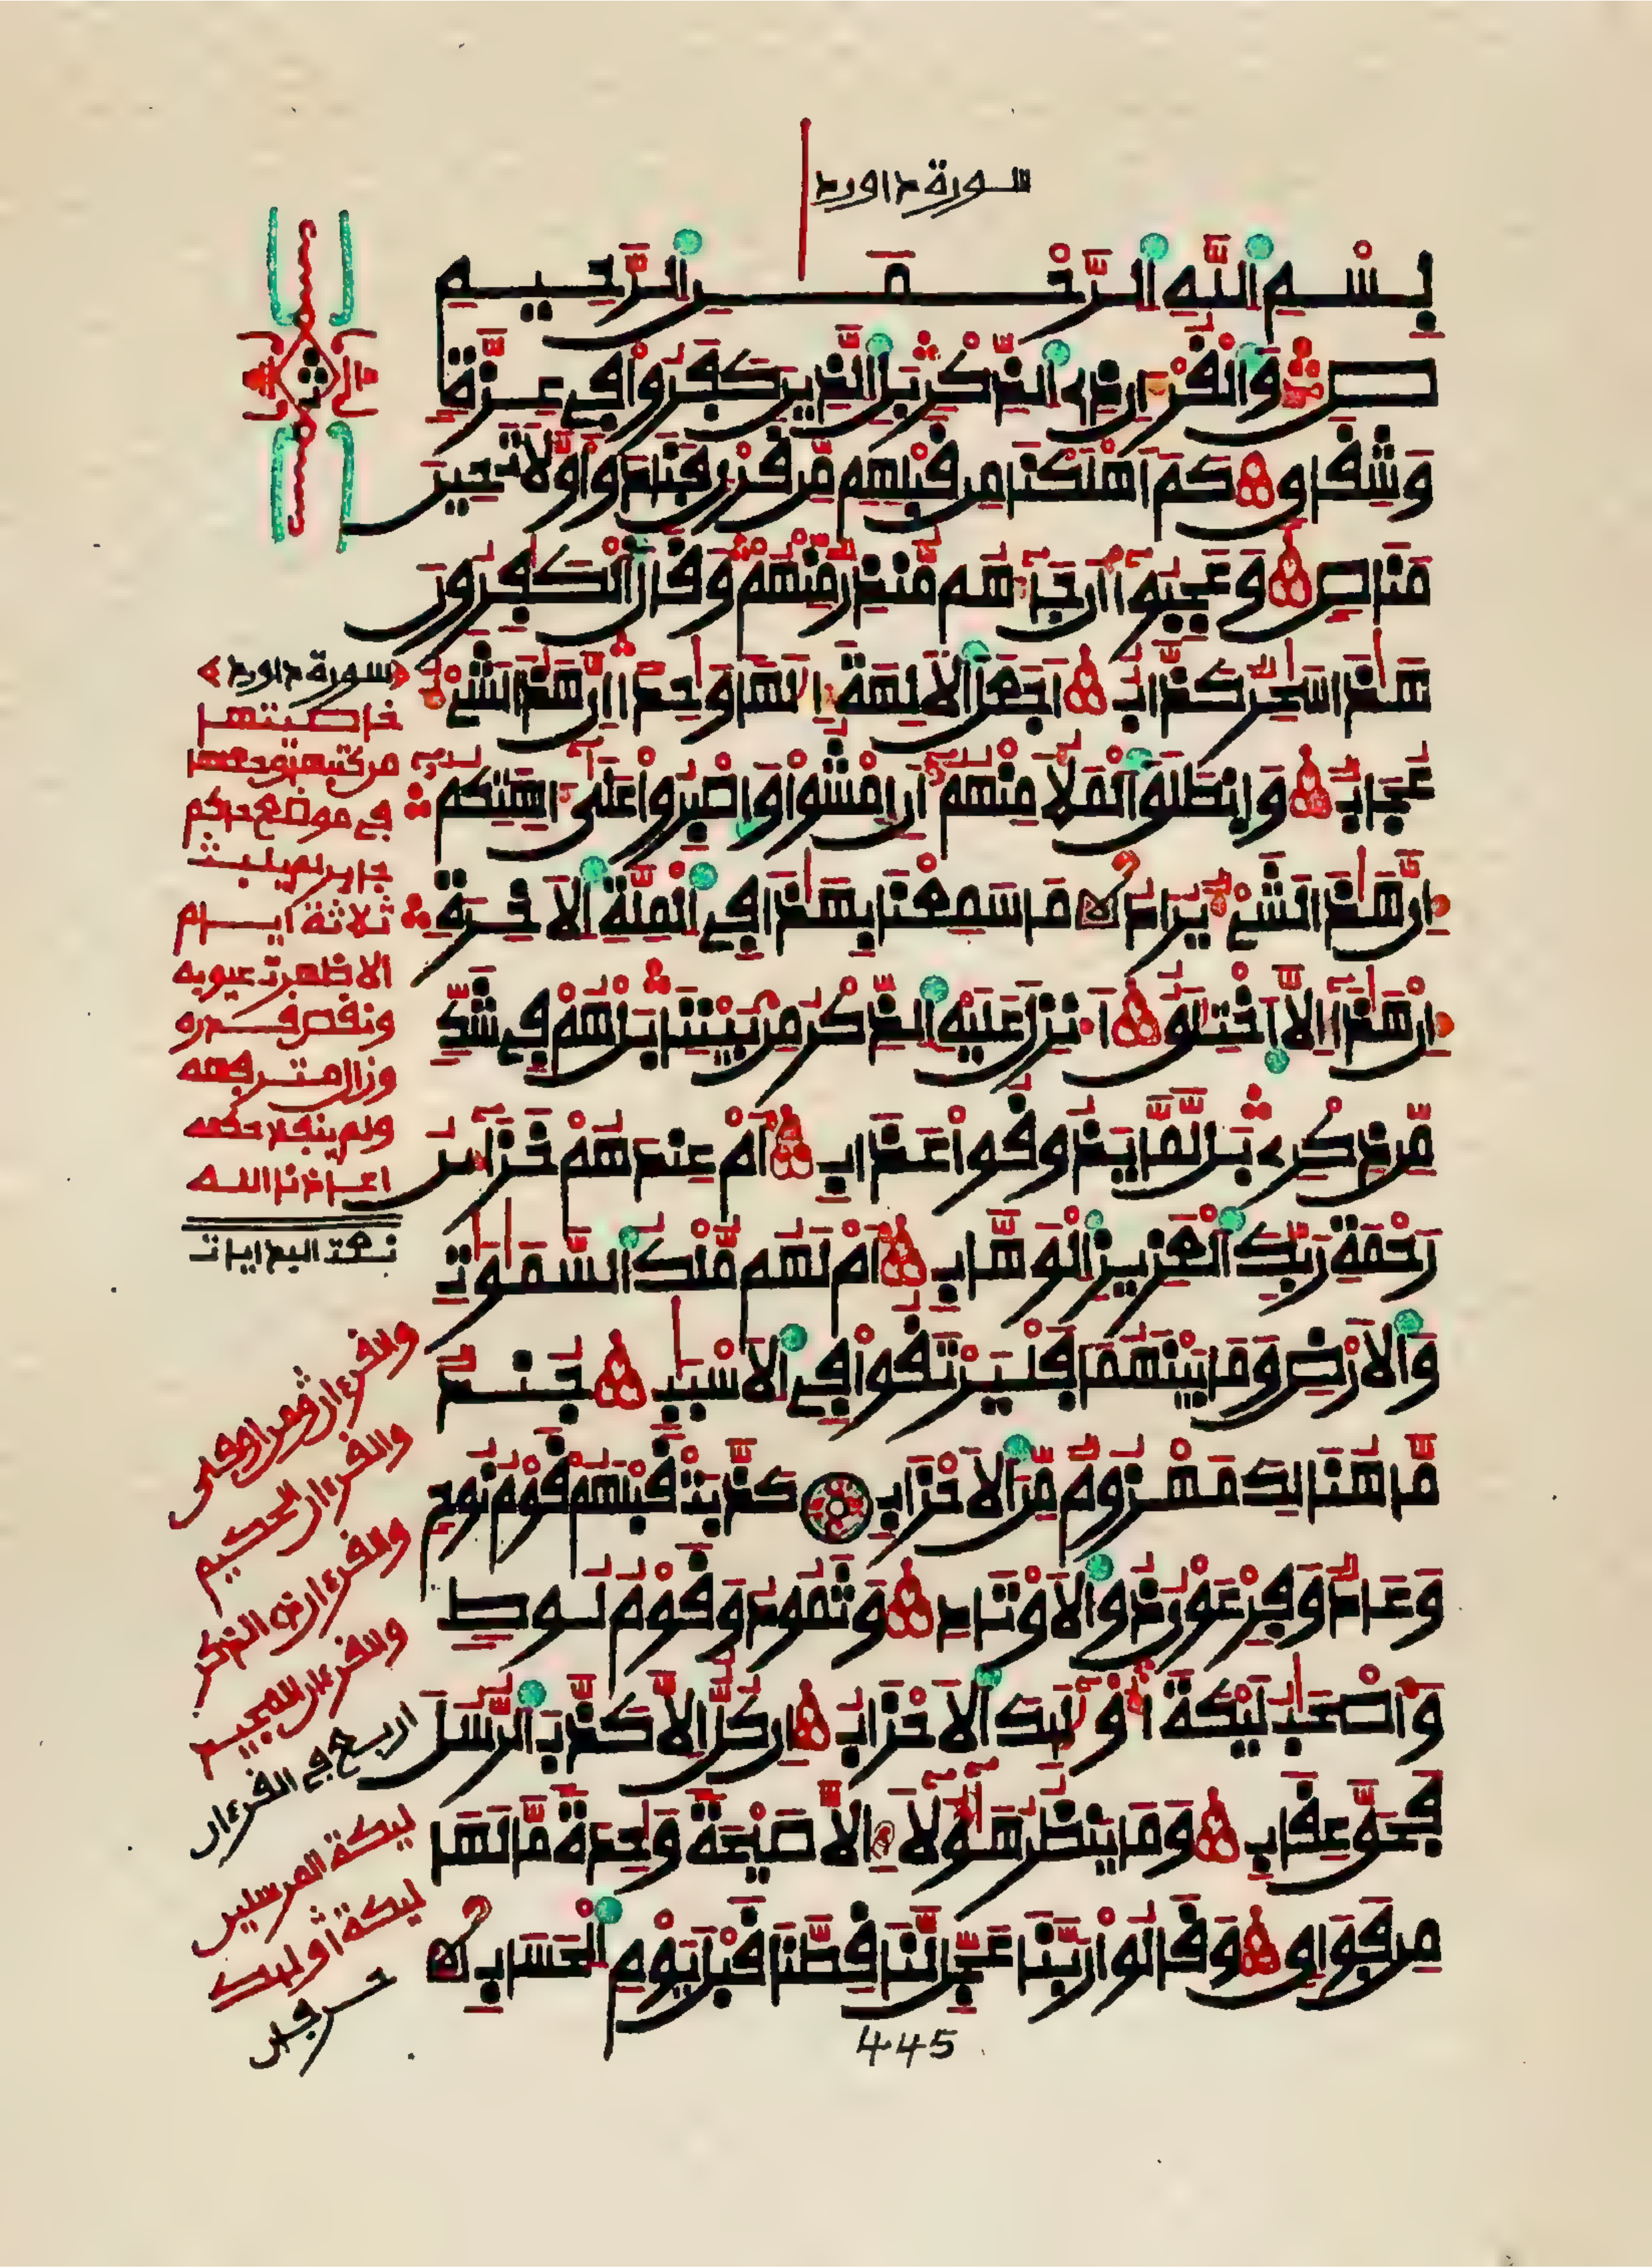 سورة داوود
بِسْمِ اللَّهِ الرَّحْمَـٰنِ الرَّحِيمِ
صٓ وَالْقُرْءَانِ ذِى الذِّكْرِ بَلِ الذِينَ كَفَرُوا فِى عِزَّةٍ
وَشِقَاقٍ كَمَ اَهْلَكْنَا مِن قَبْلِهِم مِّن قَرْنٍ فَنَادَوا وَّلَاتَ حِينَ
مَنَاصٍ وَعَجِبُوا أَن جَاءَهُم مُّنذِرٌ مِّنْهُمْ وَقَالَ الْكَـٰفِرُونَ
هَـٰذَا سَـٰحِرٌ كَذَّابٌ اَجَعَلَ الَالِهَةَ إِلَـٰهًا وَٰحِدًا اِنَّ هَـٰذَا لَشَىْءٌ
عُجَابٌ وَانطَلَقَ الْمَلَأُ مِنْهُمُ أَنِ امْشُوا وَاصْبِرُوا عَلَىٰ ءَالِهَتِكُمُ
إِنَّ هَـٰذَا لَشَىْءٌ يُرَادُ مَا سَمِعْنَا بِهَـٰذَا فِى الْمِلَّةِ الَاخِرَةِ
إِنْ هَـٰذَا إِلَّا اَخْتِلَـٰقٌ اَ۟نزِلَ عَلَيْهِ الذِّكْرُ مِن بَيْنِنَا بَلْ هُمْ فِى شَكٍّ
مِّن ذِكْرِى بَل لَّمَّا يَذُوقُوا عَذَابِ أَمْ عِندَهُمْ خَزَائِنُ
رَحْمَةِ رَبِّكَ الْعَزِيزِ الْوَهَّابِ أَمْ لَهُم مُّلْكُ السَّمَـٰوَٰتِ
وَالَارْضِ وَمَا بَيْنَهُمَا فَلْيَرْتَقُوا فِى الَاسْبَـٰبِ جُندٌ
مَّا هُنَالِكَ مَهْزُومٌ مِّنَ الَاحْزَابِ كَذَّبَتْ قَبْلَهُمْ قَوْمُ نُوحٍ
وَعَادٌ وَفِرْعَوْنُ ذُو الَاوْتَادِ وَثَمُودُ وَقَوْمُ لُوطٍ
وَأَصْحَـٰبُ لَيْكَةَ أُوْلَـٰئِكَ الَاحْزَابُ إِن كُلٌّ اِلَّا كَذَّبَ الرُّسُلَ
فَحَقَّ عِقَابِ وَمَا يَنظُرُ هَـٰؤُلَاءِ اِلَّا صَيْحَةً وَٰحِدَةً مَّا لَهَا
مِن فَوَاقٍ وَقَالُوا رَبَّنَا عَجِّل لَّنَا قِطَّنَا قَبْلَ يَوْمِ الْحِسَابِ
445
ثمن
سورة داوود
خاصيتها
من كتبها وجعلها
في موضع حاكم
جاير لم يلبث
ثلاثة ايام
الا ظهرت عيوبه
ونقص قدره
وزال متـرفعه
ولم ينفذ حكمه
اعاذنا الله
نعت البدايات
والقرءان الحكيم
والقرءان ذى الذكر
والقرءان المجيد
اربع في القرءان
ليكة المرسلين
ليكة أولئك
حرفان